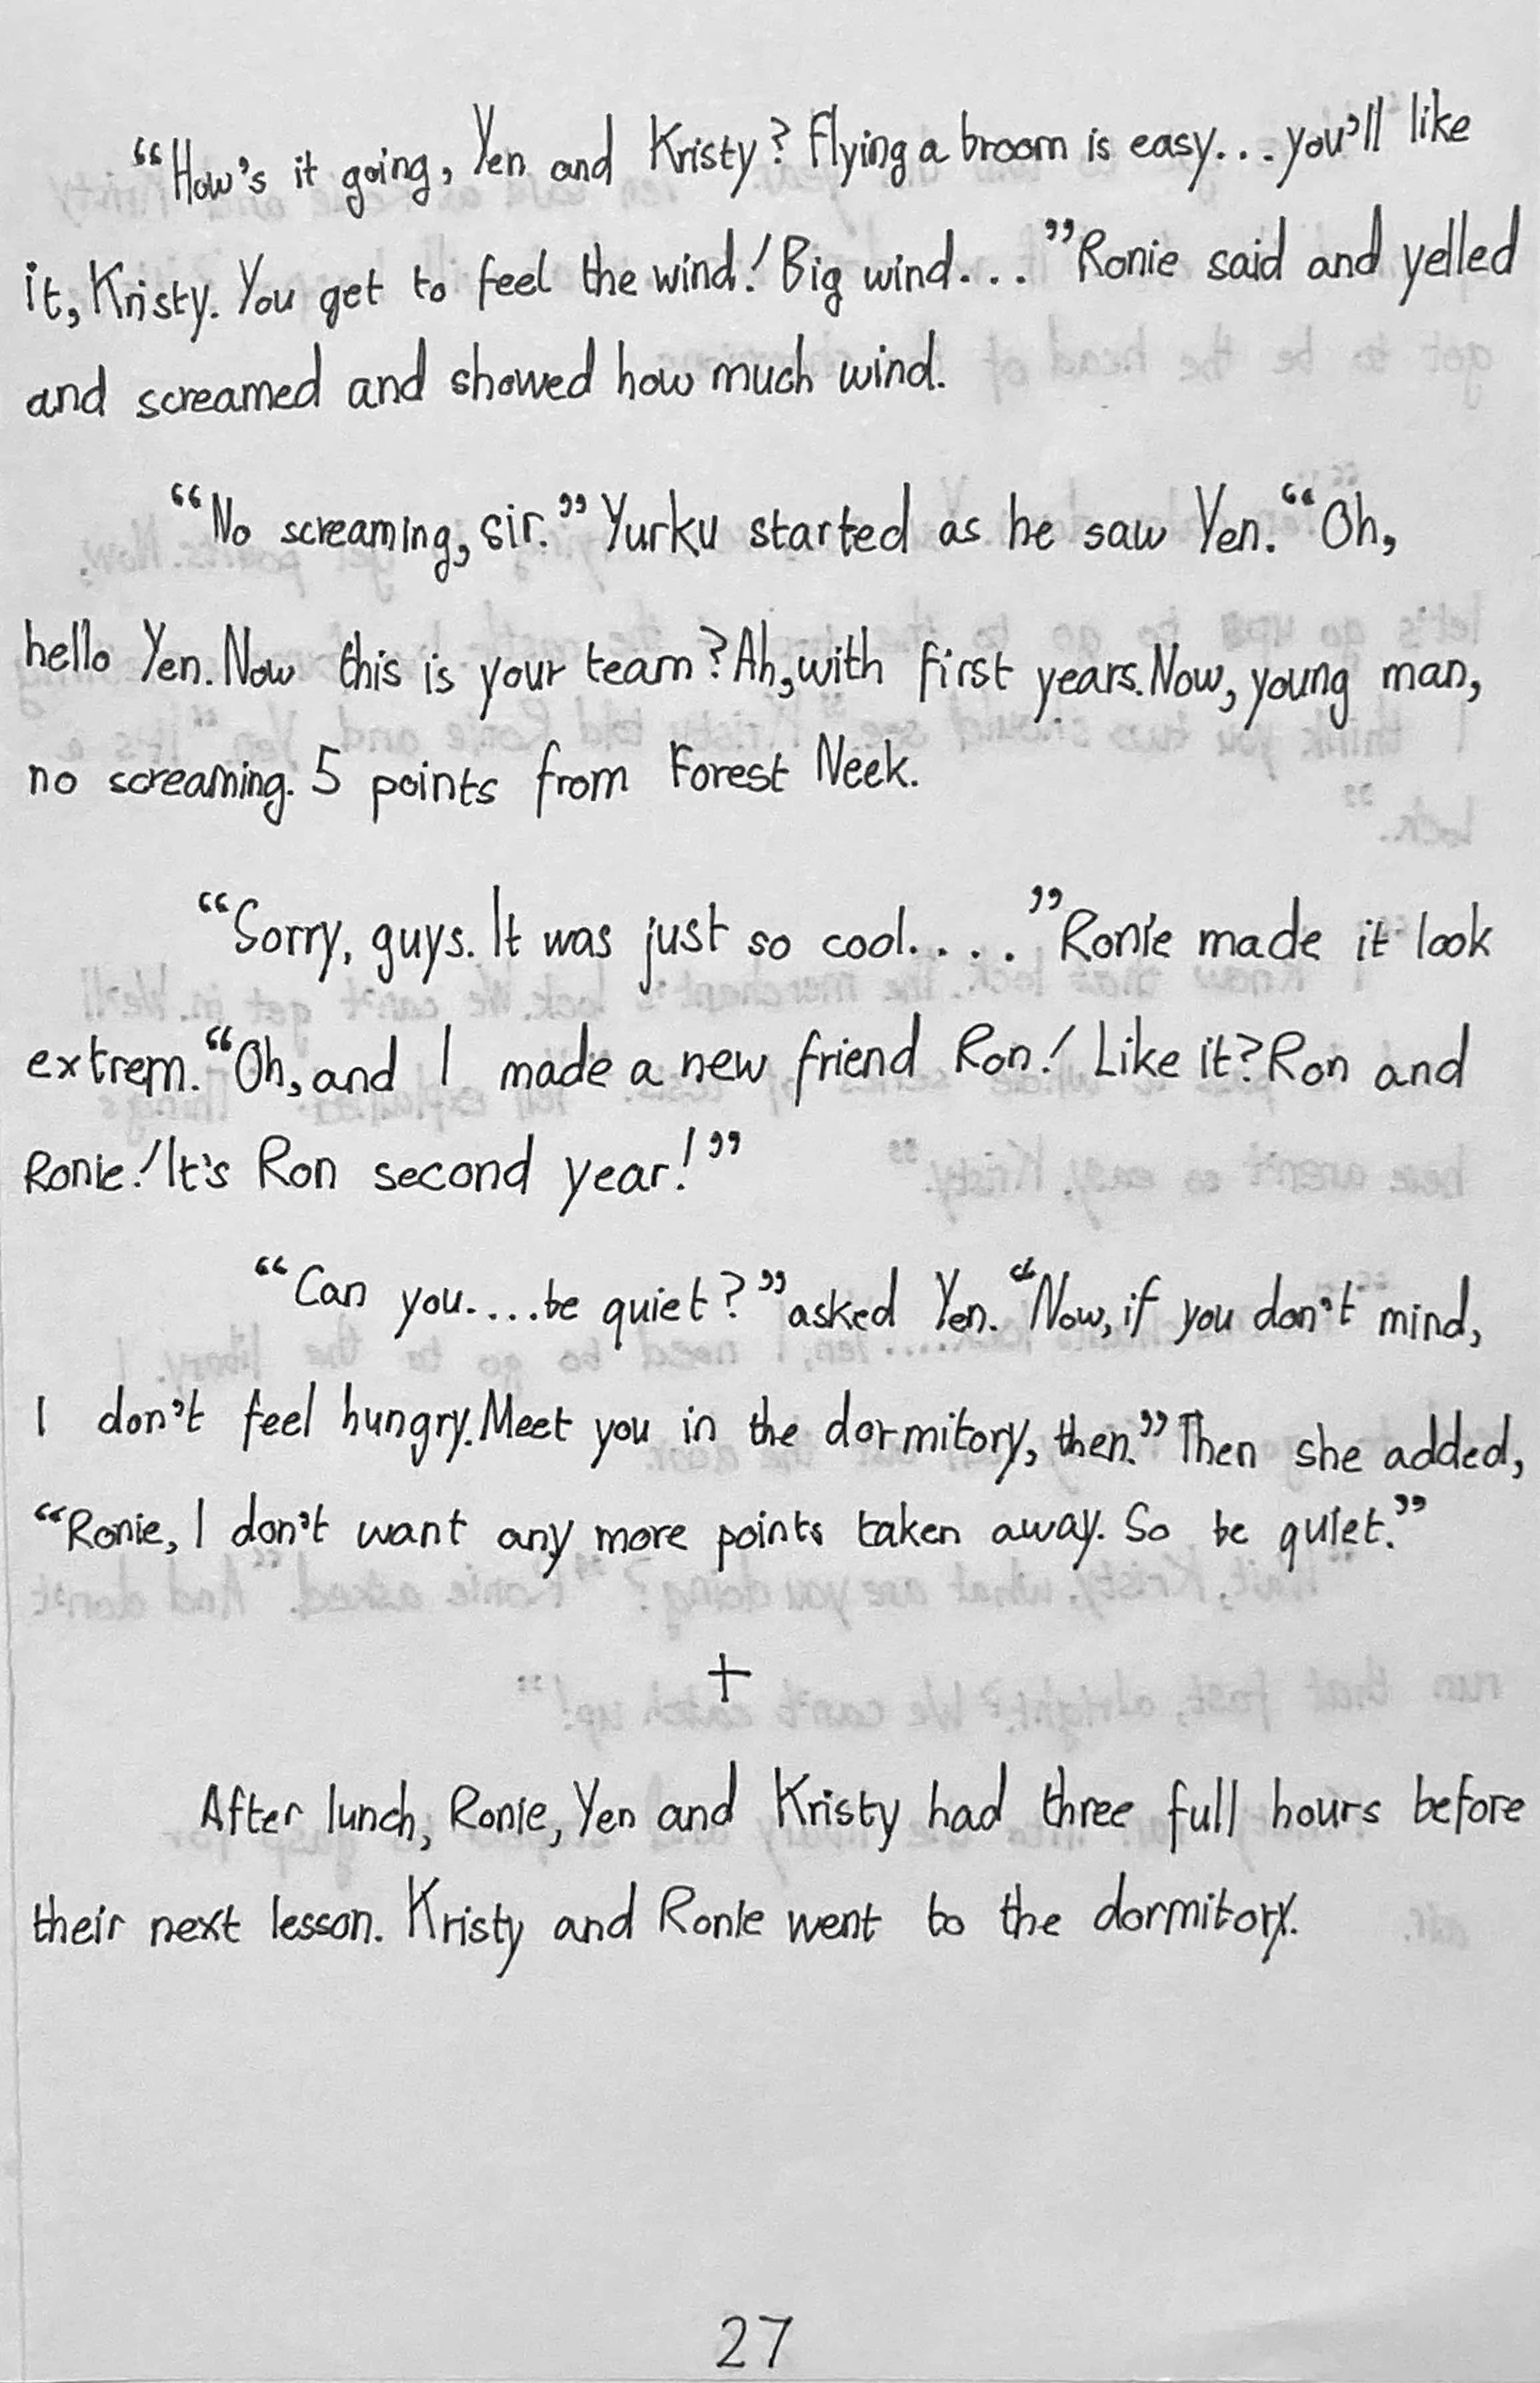 “How's it going, Yen and Kristy? Flying a broom is easy... you'll like
it, Kristy. You get to feel the wind! Big wind....” Ronie said and yelled
and screamed and showed how much wind.
“No screaming, sir.” Yurku started as he saw Yen. “Oh,
hello Yen. Now this is your team? Ah, with first years. Now, young man,
no screaming. 5 points from Forest Neek.
“Sorry, guys. It was just so cool.....” Ronie made it look
extrem. “Oh, and I made a new friend Ron! Like it? Ron and
Ronie! It's Ron second year!”
“Can you.....be quiet?” asked Yen. “Now, if you don't mind,
I don't feel hungry. Meet you in the dormitory, then.” Then she added,
“Ronie, I don't want any more points taken away. So be quiet.”
+
After lunch, Ronie, Yen and Kristy had three full hours before
their next lesson. Kristy and Ronie went to the dormitory.
27